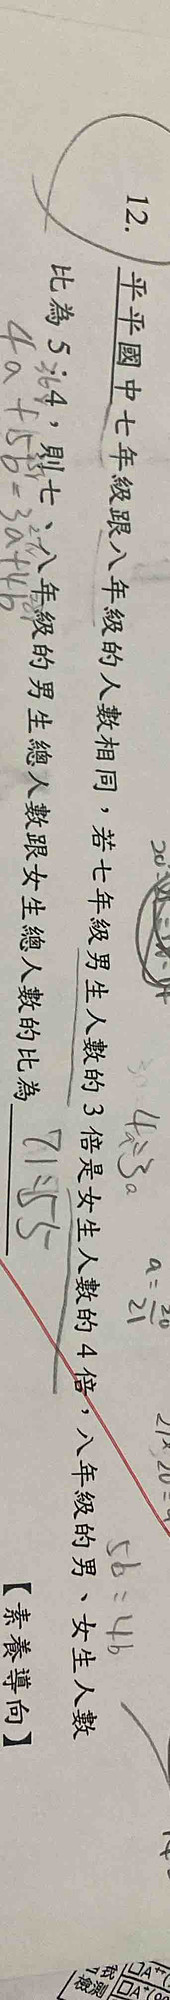 12. 平平國中七年級跟八年級的人數相同，若七年級男生人數的3倍是女生人數的4倍，八年級的男、女生人數
比為5：4，則七、八年級的男生總人數跟女生總人數的比為 71：55 【素養導向】
4a+5b=3a+4b
4a：3a
5b：4b
a=20/21